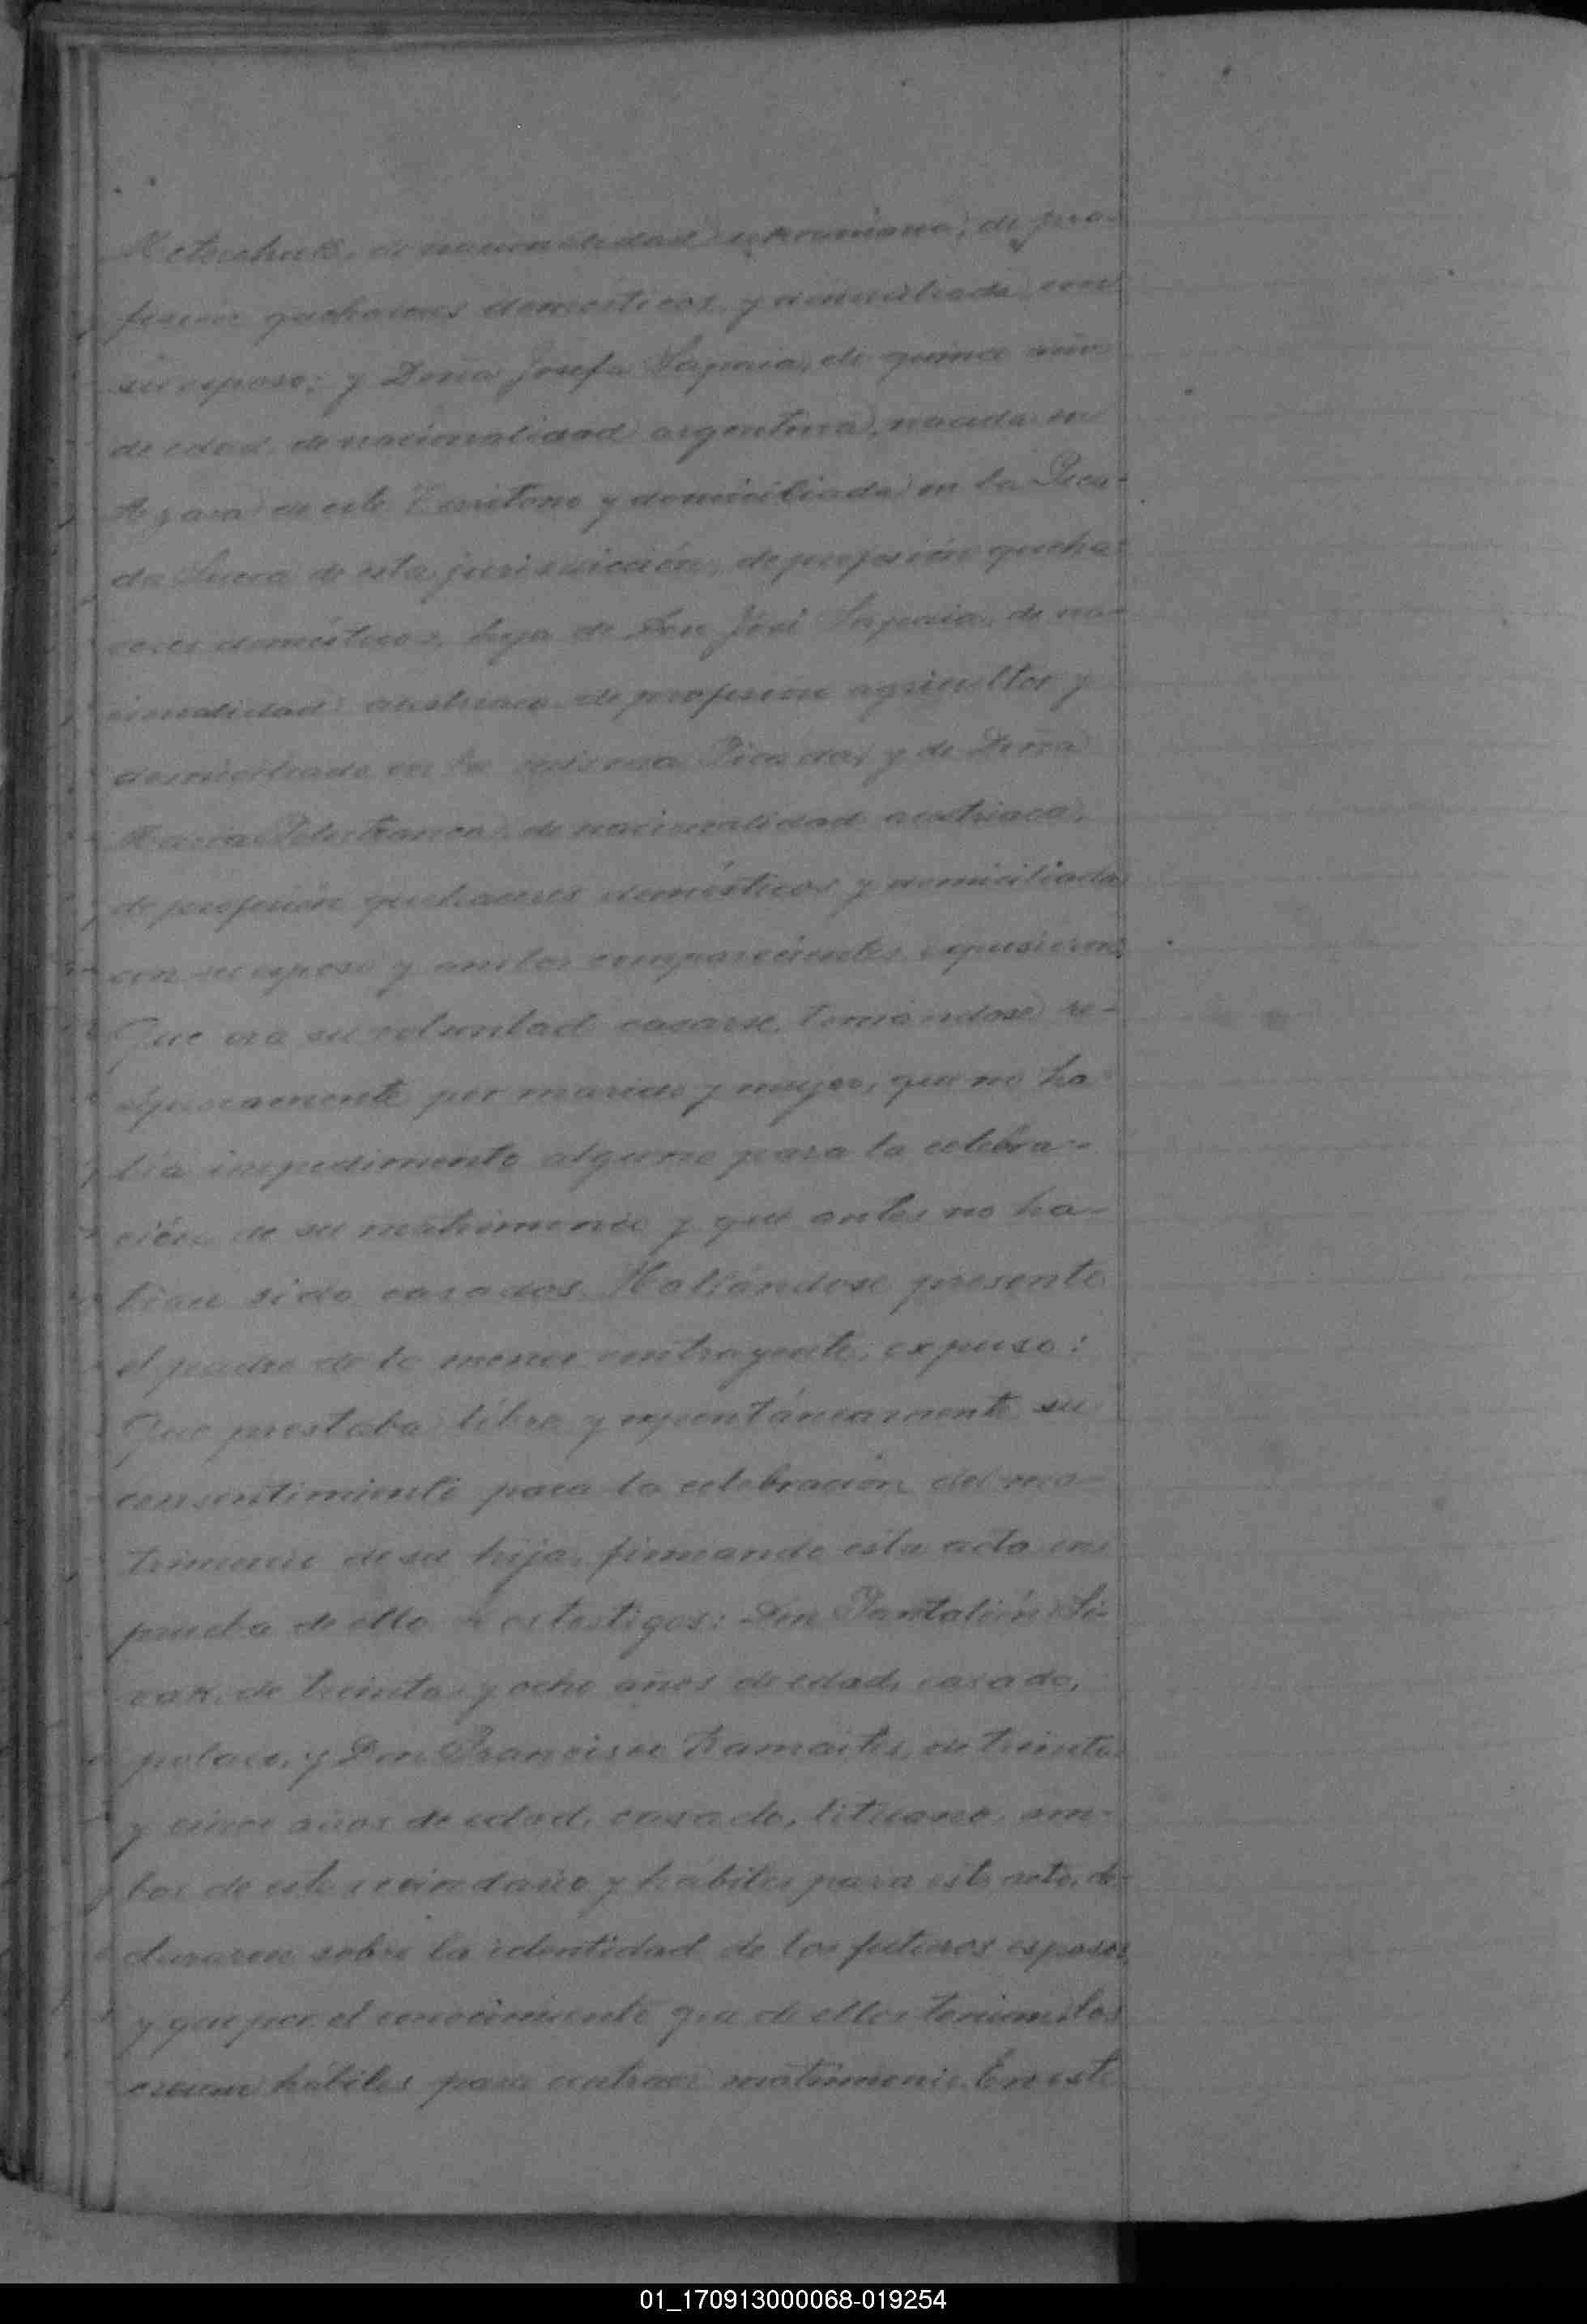 de nacionalidad ukraniana, de pro-
fesión quehaceres domésticos, y domiciliada con
su esposo; y Doña Josefa Sapaia, de quince años
de edad, de nacionalidad argentina, nacida en
Azara en este Territorio y domiciliada en la Pica-
da Sueca de esta jurisdicción, de profesión queha-
ceres domésticos, hija de Don José Sapaia, de na-
cionalidad austriaco, de profesión agricultor y
domiciliado en la misma Picada, y de Doña
de nacionalidad austriaca,
de profesión quehaceres domésticos y domiciliada
con su esposo y ambos comparecientes expusieron:
Que era su voluntad casarse, tomándose re-
cíprocamente por marido y mujer, que no ha-
bía impedimento alguno para la celebra-
ción de su matrimonio y que antes no ha-
bían sido casados. Hallándose presente
el padre de la menor contrayente, expuso:
Que prestaba libre y espontáneamente su
consentimiento para la celebración del ma-
trimonio de su hija, firmando esta acta en
prueba de ello. Los testigos: Don Pantalión Si-
vak, de treinta y ocho años de edad, casado,
polaco, y Don Francisco Ramaitis, de treinta
y cinco años de edad, casado, lituano, am-
bos de este vecindario y hábiles para este acto, de-
clararon sobre la identidad de los futuros esposos
y que por el conocimiento que de ellos tenian, los
creian hábiles para contraer matrimonio. En este
01_170913000068-019254